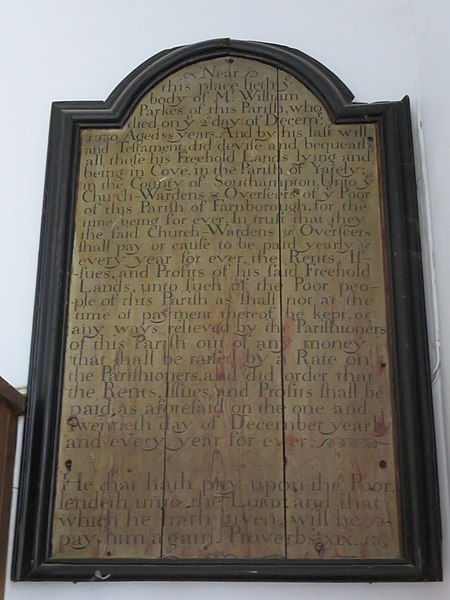 Near
this place lieth yͤ
body of Mͬ William
Parkes of this Pariſh, who
died on yͤ 2ͩ day of Decemͬ:
Aged years. And by his laſt will
and Teſtament, did deviſe and bequeath
all those his Freehold Lands lying and
being in Cove, in the Pariſh of Yately,
in the County of Southampton, Unto yͤ
Church-Wardens & Overſeers of yͤ Poor
of this Pariſh of Farnborough, for the
time being for ever, In truſt that they
the ſaid Church-Wardens & Overſeers
ſhall pay or cauſe to be paid yearly &
every year for ever, the Rents, Iſ-
ſues, and Profits of his ſaid Freehold
Lands, unto ſuch of the Poor peo-
ple of this Pariſh as ſhall not at the
time of payment thereof be kept, or
any ways relieved by the Pariſhioners
of this Pariſh out of any money
that ſhall be raiſed by a Rate on
the Pariſhioners, and did order that
the Rents, Iſſues, and Profits ſhall be
paid, as aforeſaid on the one and
twentieth day of December yearly
and every year for ever.
He that hath pity upon the Poor,
lendeth unto the LORD: and that
which he hath given, will he
pay him again. Proverbs XIX.